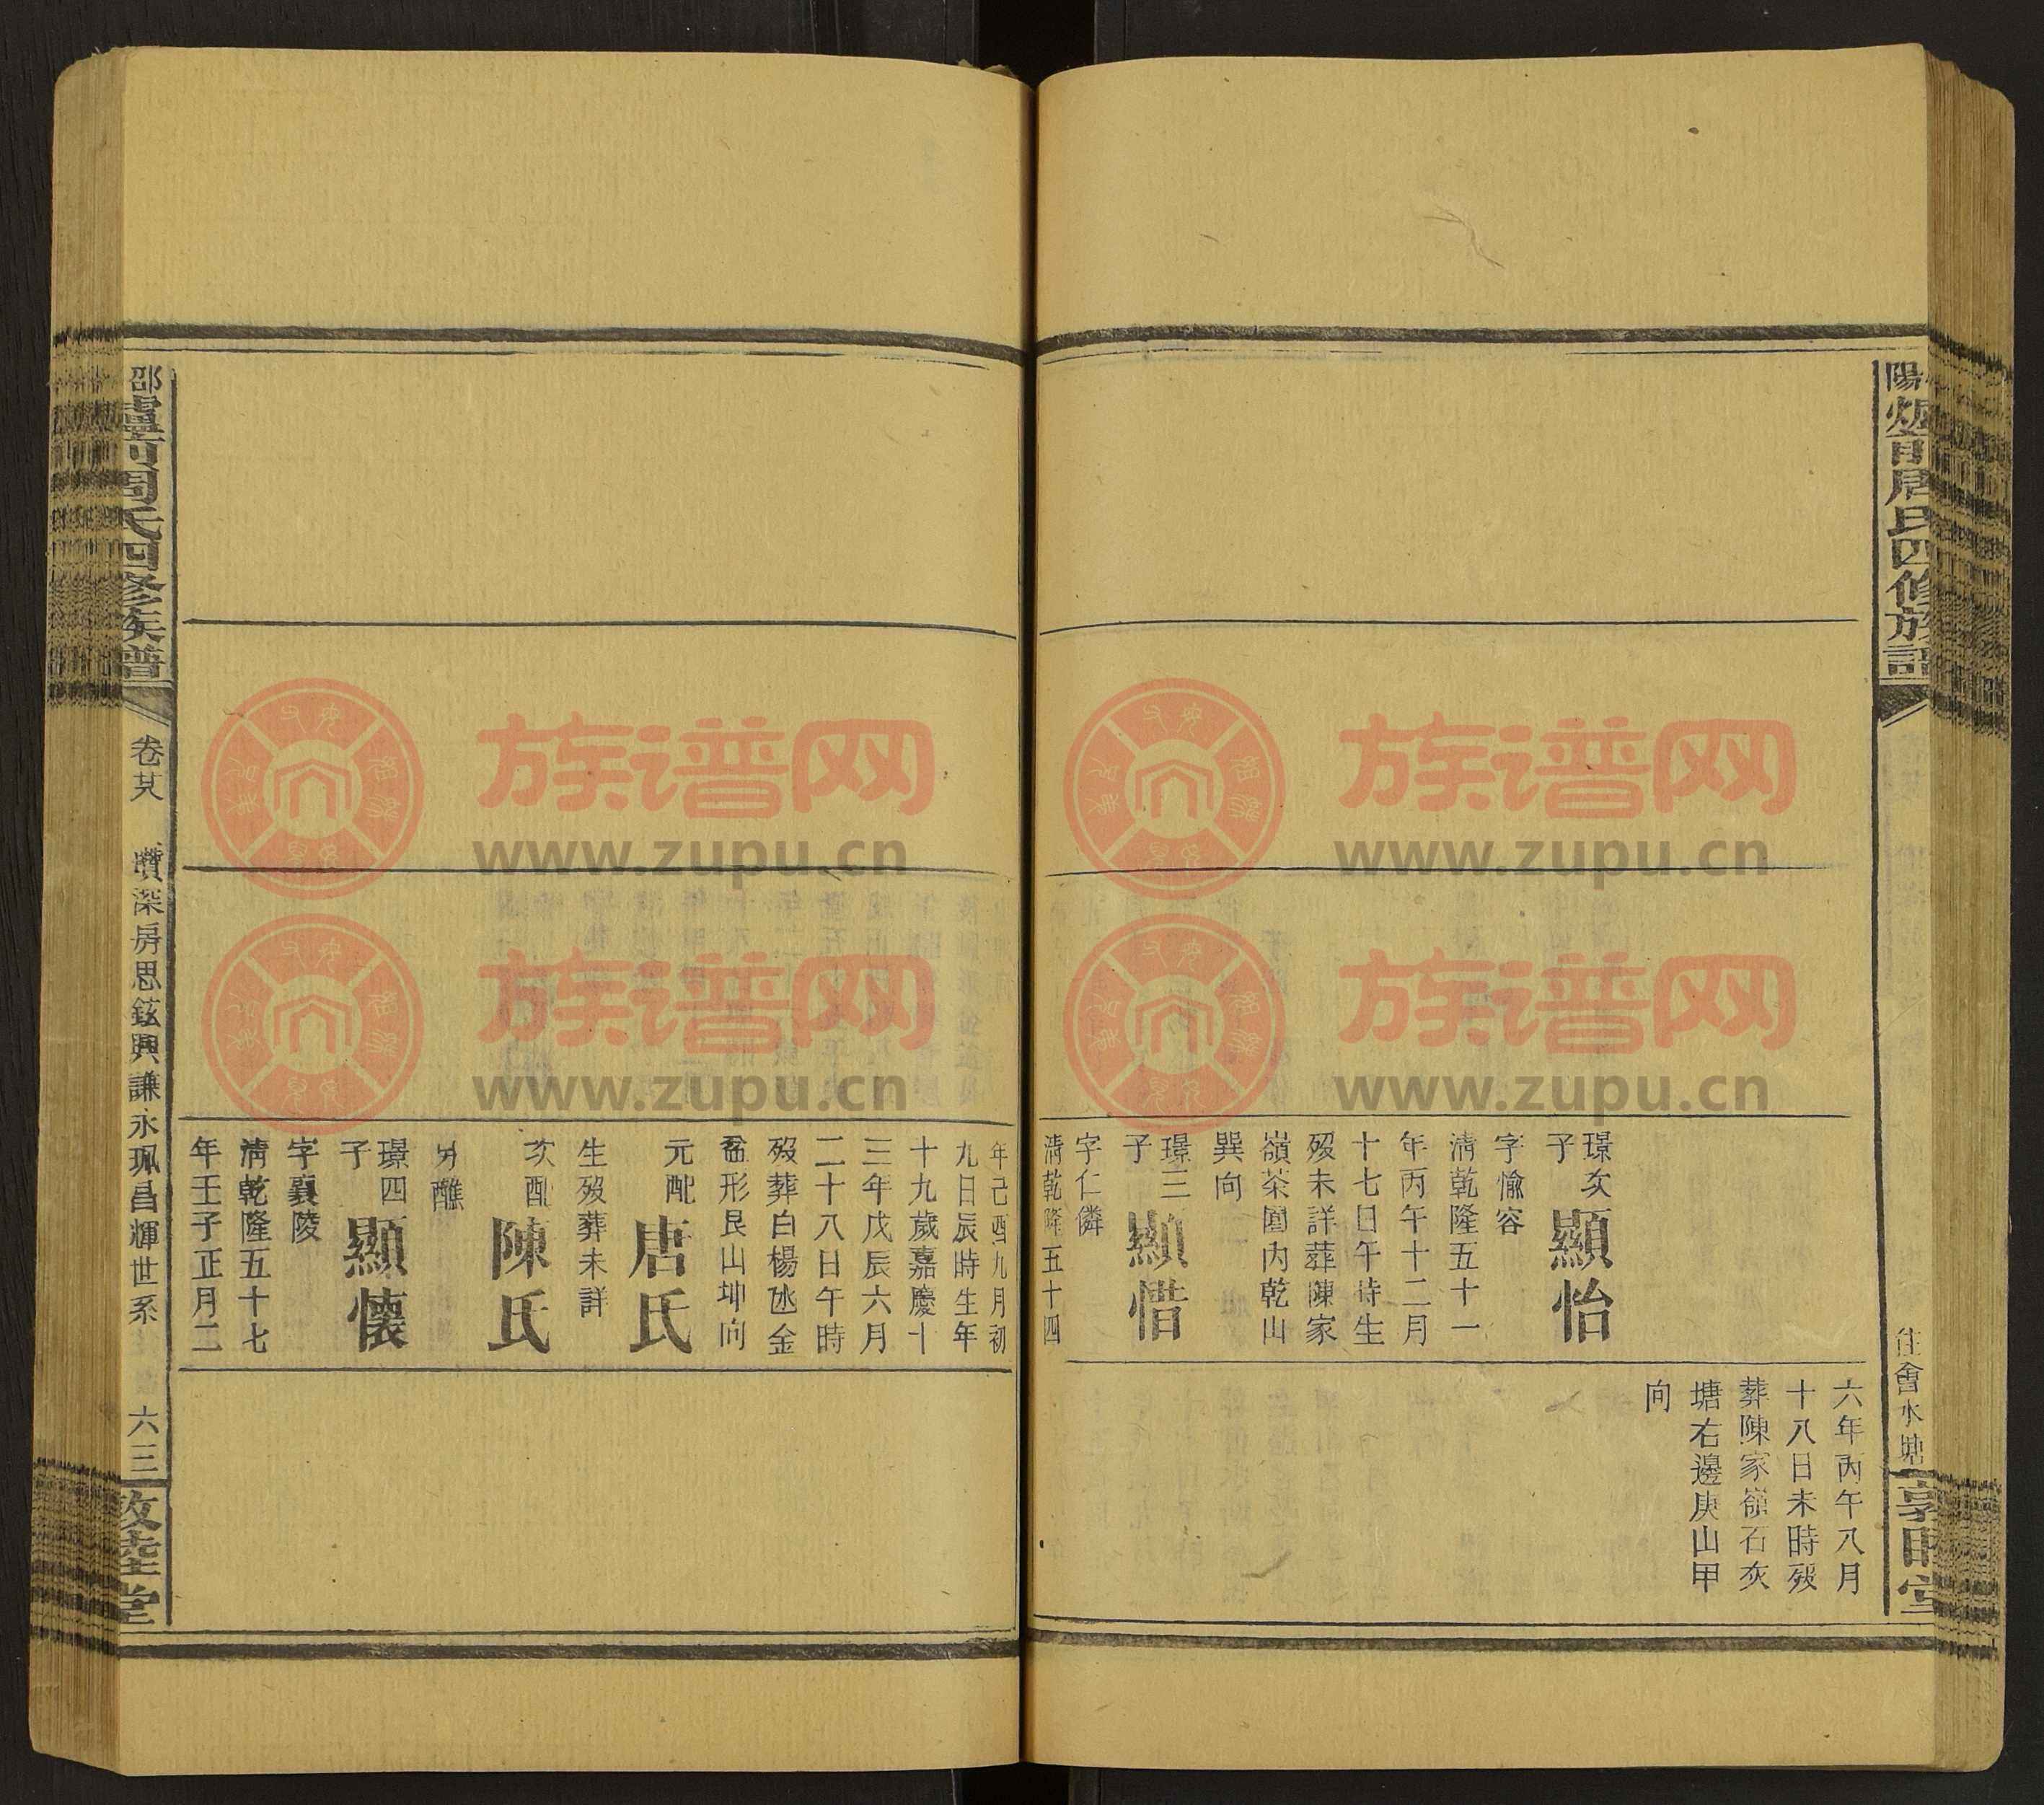 陽爐前周氏四修族譜
住會水塘
敦睦堂
六年丙午八月
十八日未時歿
葬陳家嶺石灰
塘右邊庚山甲
向
璟次子 顯怡
字愉容
清乾隆五十一
年丙午十二月
十七日午時生
歿未詳葬陳家
嶺茶園內乾山
巽向
璟三子 顯惜
字仁憐
清乾隆五十四
年己酉九月初
九日辰時生年
十九歲嘉慶十
三年戊辰六月
二十八日午時
歿葬白楊氹金
畚形艮山坤向
元配 唐氏
生歿葬未詳
次配 陳氏
另醮
璟四子 顯懷
字襄陵
清乾隆五十七
年壬子正月二
邵爐前周氏四修族譜
卷廿八
瓚深房思鉉興謙永珮昌輝世系
六三
敦睦堂
族谱网
www.zupu.cn
族谱网
www.zupu.cn
族谱网
www.zupu.cn
族谱网
www.zupu.cn